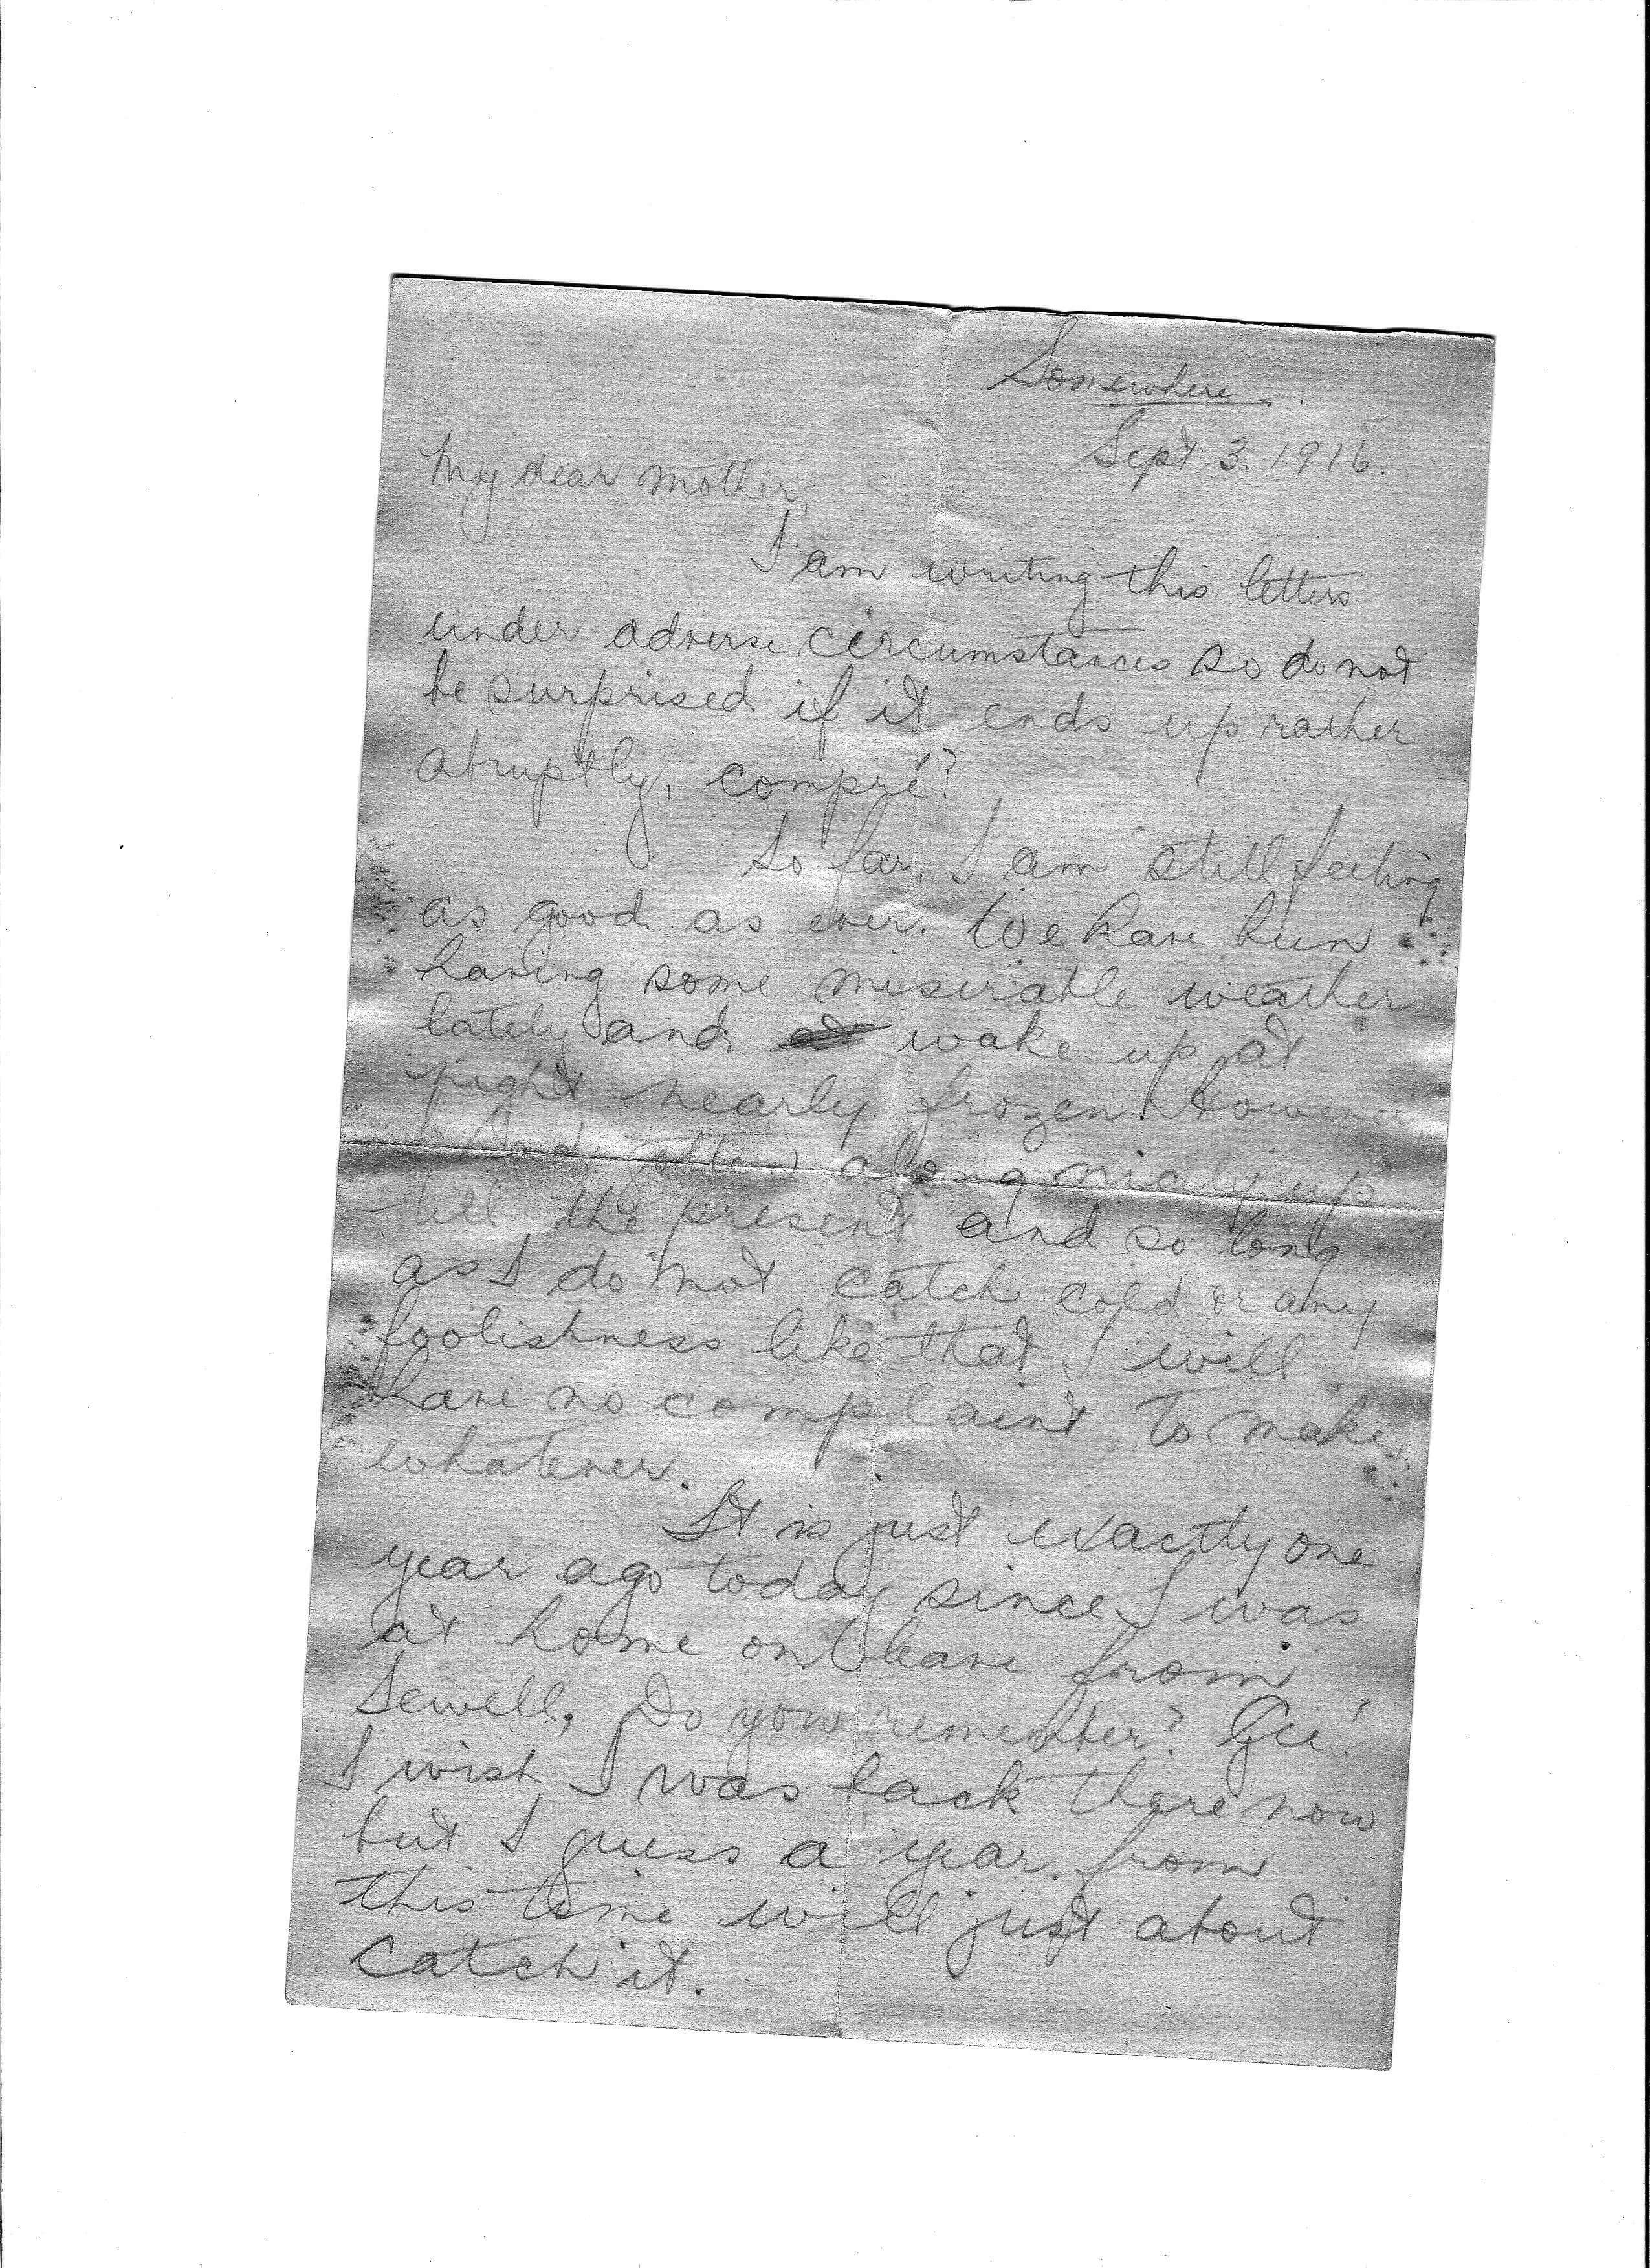 Somewhere.
Sept. 3. 1916.
My dear mother,
I am writing this letters
under adverse circumstances so do not
be surprised if it ends up rather
abruptly, compré?
So far, I am still feeling
as good as ever. We have been
having some miserable weather
lately and at wake up at
night nearly frozen. However
I had gotten along nicely up
till the present and so long
as I do not catch cold or any
foolishness like that I will
have no complaint to make
whatever.
It is just exactly one
year ago today since I was
at home on leave from
Sewell. Do you remember? Gee!
I wish I was back there now
but I guess a year from
this time will just about
catch it.